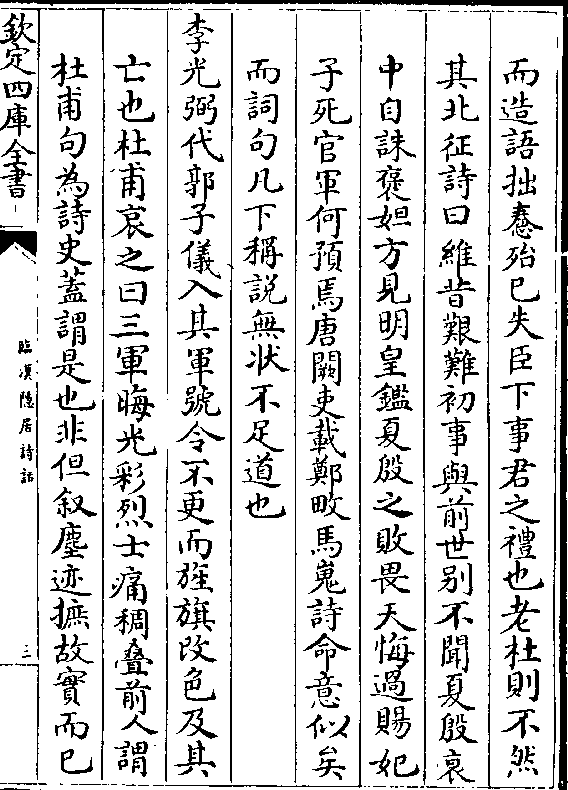 而造語拙惷殆已失臣下事君之禮也老杜則不然
其北征詩曰維昔艱難初事與前世别不聞夏殷衰
中自誅襃妲方見明皇鑑夏殷之敗畏天悔過賜妃
子死官軍何預焉唐闕吏載鄭畋馬嵬詩命意似矣
而詞句凡下稱説無狀不足道也
李光弼代郭子儀入其軍號令不更而旌旗改色及其
亡也杜甫哀之曰三軍晦光彩烈士痛稠叠前人謂
杜甫句為詩史蓋謂是也非但叙塵迹摭故實而已
欽定四庫全書
臨漢隠居詩話
三